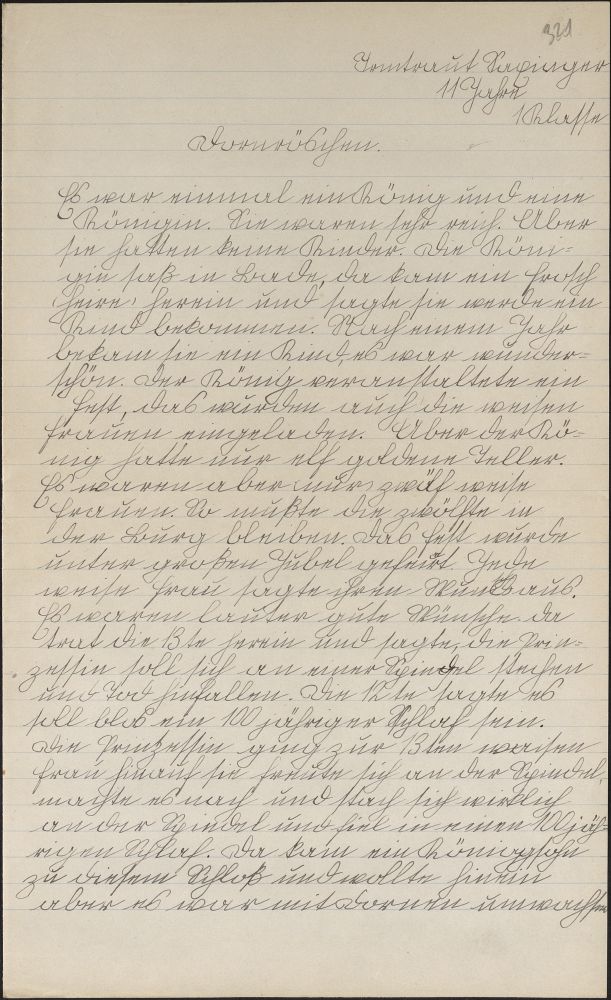 321
Irmtraut Sapinger
11 Jahre
1 Klasse
Dornröschen.
Es war einmal ein König und eine
Königin. Sie waren sehr reich. Aber
sie hatten keine Kinder. Die Köni=
gin saß in Bade, da kam ein Frosch
herein und sagte sie werde ein
Kind bekommen. Nach einem Jahr
bekam sie ein Kind, es war wunder=
schön. Der König veranstaltete ein
Fest, das wurden auch die weisen
Frauen eingeladen. Aber der Kö=
nig hatte nur elf goldene Teller.
Es waren aber (nur) zwölf weise
Frauen. So mußte die zwölfte in
der Burg bleiben. Das Fest wurde
unter großen Jubel gefeiert. Jede
weise Frau sagte ihren Wunsch aus.
Es waren lauter gute Wünsche. da
trat die 13te herein und sagte, die Prin=
zessin soll sich an einer Spindel stechen
und tod hinfallen. Die 12te sagte es
soll blos ein 100 jähriger Schlaf sein.
Die Prinzessin ging zur 13ten weisen
Frau hinauf sie freute sich an der Spindel,
machte es nach und stach sich wirklich
an der Spindel und fiel in einen 100jäh=
rigen Schlaf. Da kam ein Königssohn
zu diesem Schloß und wollte hinein
aber es war mit Dornen umwachsen